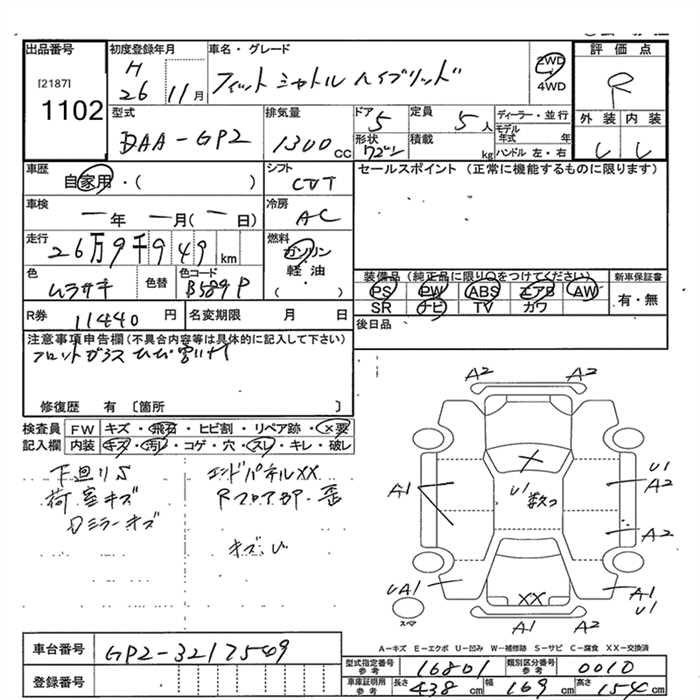 出品番号
[2187]
1102
初度登録年月
H
26 11月
車名・グレード
フィット シャトル ハイブリッド
2WD
4WD
評価点
R
外装 内装
型式
DAA-GP2
排気量
1300cc
ドア
5
形状
ワゴン
定員
5人
積載
kg
ディーラー・並行
モデル年式 年
ハンドル 左・右
車歴
自家用・( )
シフト
CVT
セールスポイント (正常に機能するものに限ります)
車検
—年 —月(—日)
冷房
AC
走行
26万9千949km
燃料
ガソリン
軽・油
( )
色
ムラサキ
色替
色コード
B589P
装備品(純正品に限り○をつけてください)
PS PW ABS エアB AW
SR ナビ TV カワ
新車保証書
有・無
R券 11440円
名変期限 月 日
後日品
注意事項申告欄(不具合内容等は具体的に記入して下さい)
フロントガラス ヒビ割れ
修復歴 有 [箇所 ]
検査員
記入欄
FW キズ・飛石・ヒビ割・リペア跡・×要
内装 キズ・汚レ・コゲ・穴・スレ・キレ・破レ
下廻りS
荷室キズ
Dミラーキズ
エンドパネルXX
RフロアBP・歪
キズ、U
A2 A2
A1
U1
数ヶ
U1
A2
A2
UA1
スペア
XX
A1
U1
A1 A2
A-キズ E-エクボ U-凹み W-補修跡 S-サビ C-腐食 XX-交換済
車台番号
GP2-3217549
登録番号
型式指定番号 16801
類別区分番号 0010
車庫証明用参考
長さ 438cm
幅 169cm
高さ 154cm